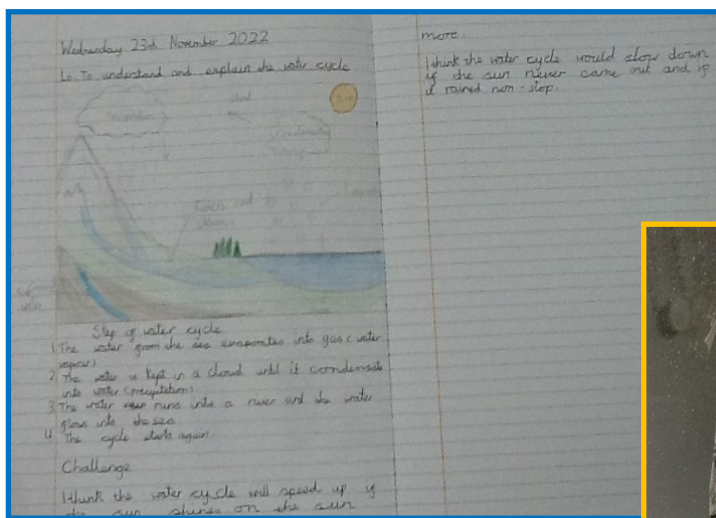 Wednesday 23rd November 2022
Lo. To understand and explain the water cycle
Rivers and
Step of water cycle
1. The water from the sea evaporates into gas (water
vapour)
2. The water is kept in a cloud until it condensate
into water (precipitation)
3. The water runs into a river and the water
flows into the sea
4 The cycle starts again.
Challenge
I think the water cycle will speed up if
the sun shines on the sun
more.
I think the water cycle would slow down
if the sun never came out and if
it rained non-stop.